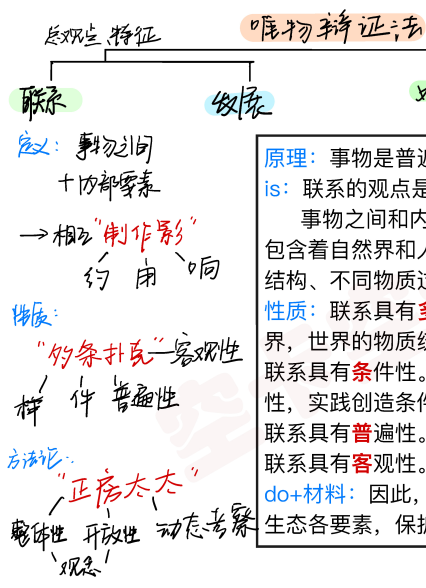 总观点、特征
唯物辩证法
联系
发展
定义：事物之间
+内部要素
→相互"制作影"
约 用 响
性质：
"多条扑克"—客观性
样 件 普遍性
方法论：
"正房太太"
整体性 开放性 动态考察
观念
原理：事物是普遍
is：联系的观点是
事物之间和内
包含着自然界和人
结构、不同物质过
性质：联系具有多
界，世界的物质统
联系具有条件性。
性，实践创造条件
联系具有普遍性。
联系具有客观性。
do+材料：因此，
生态各要素，保护